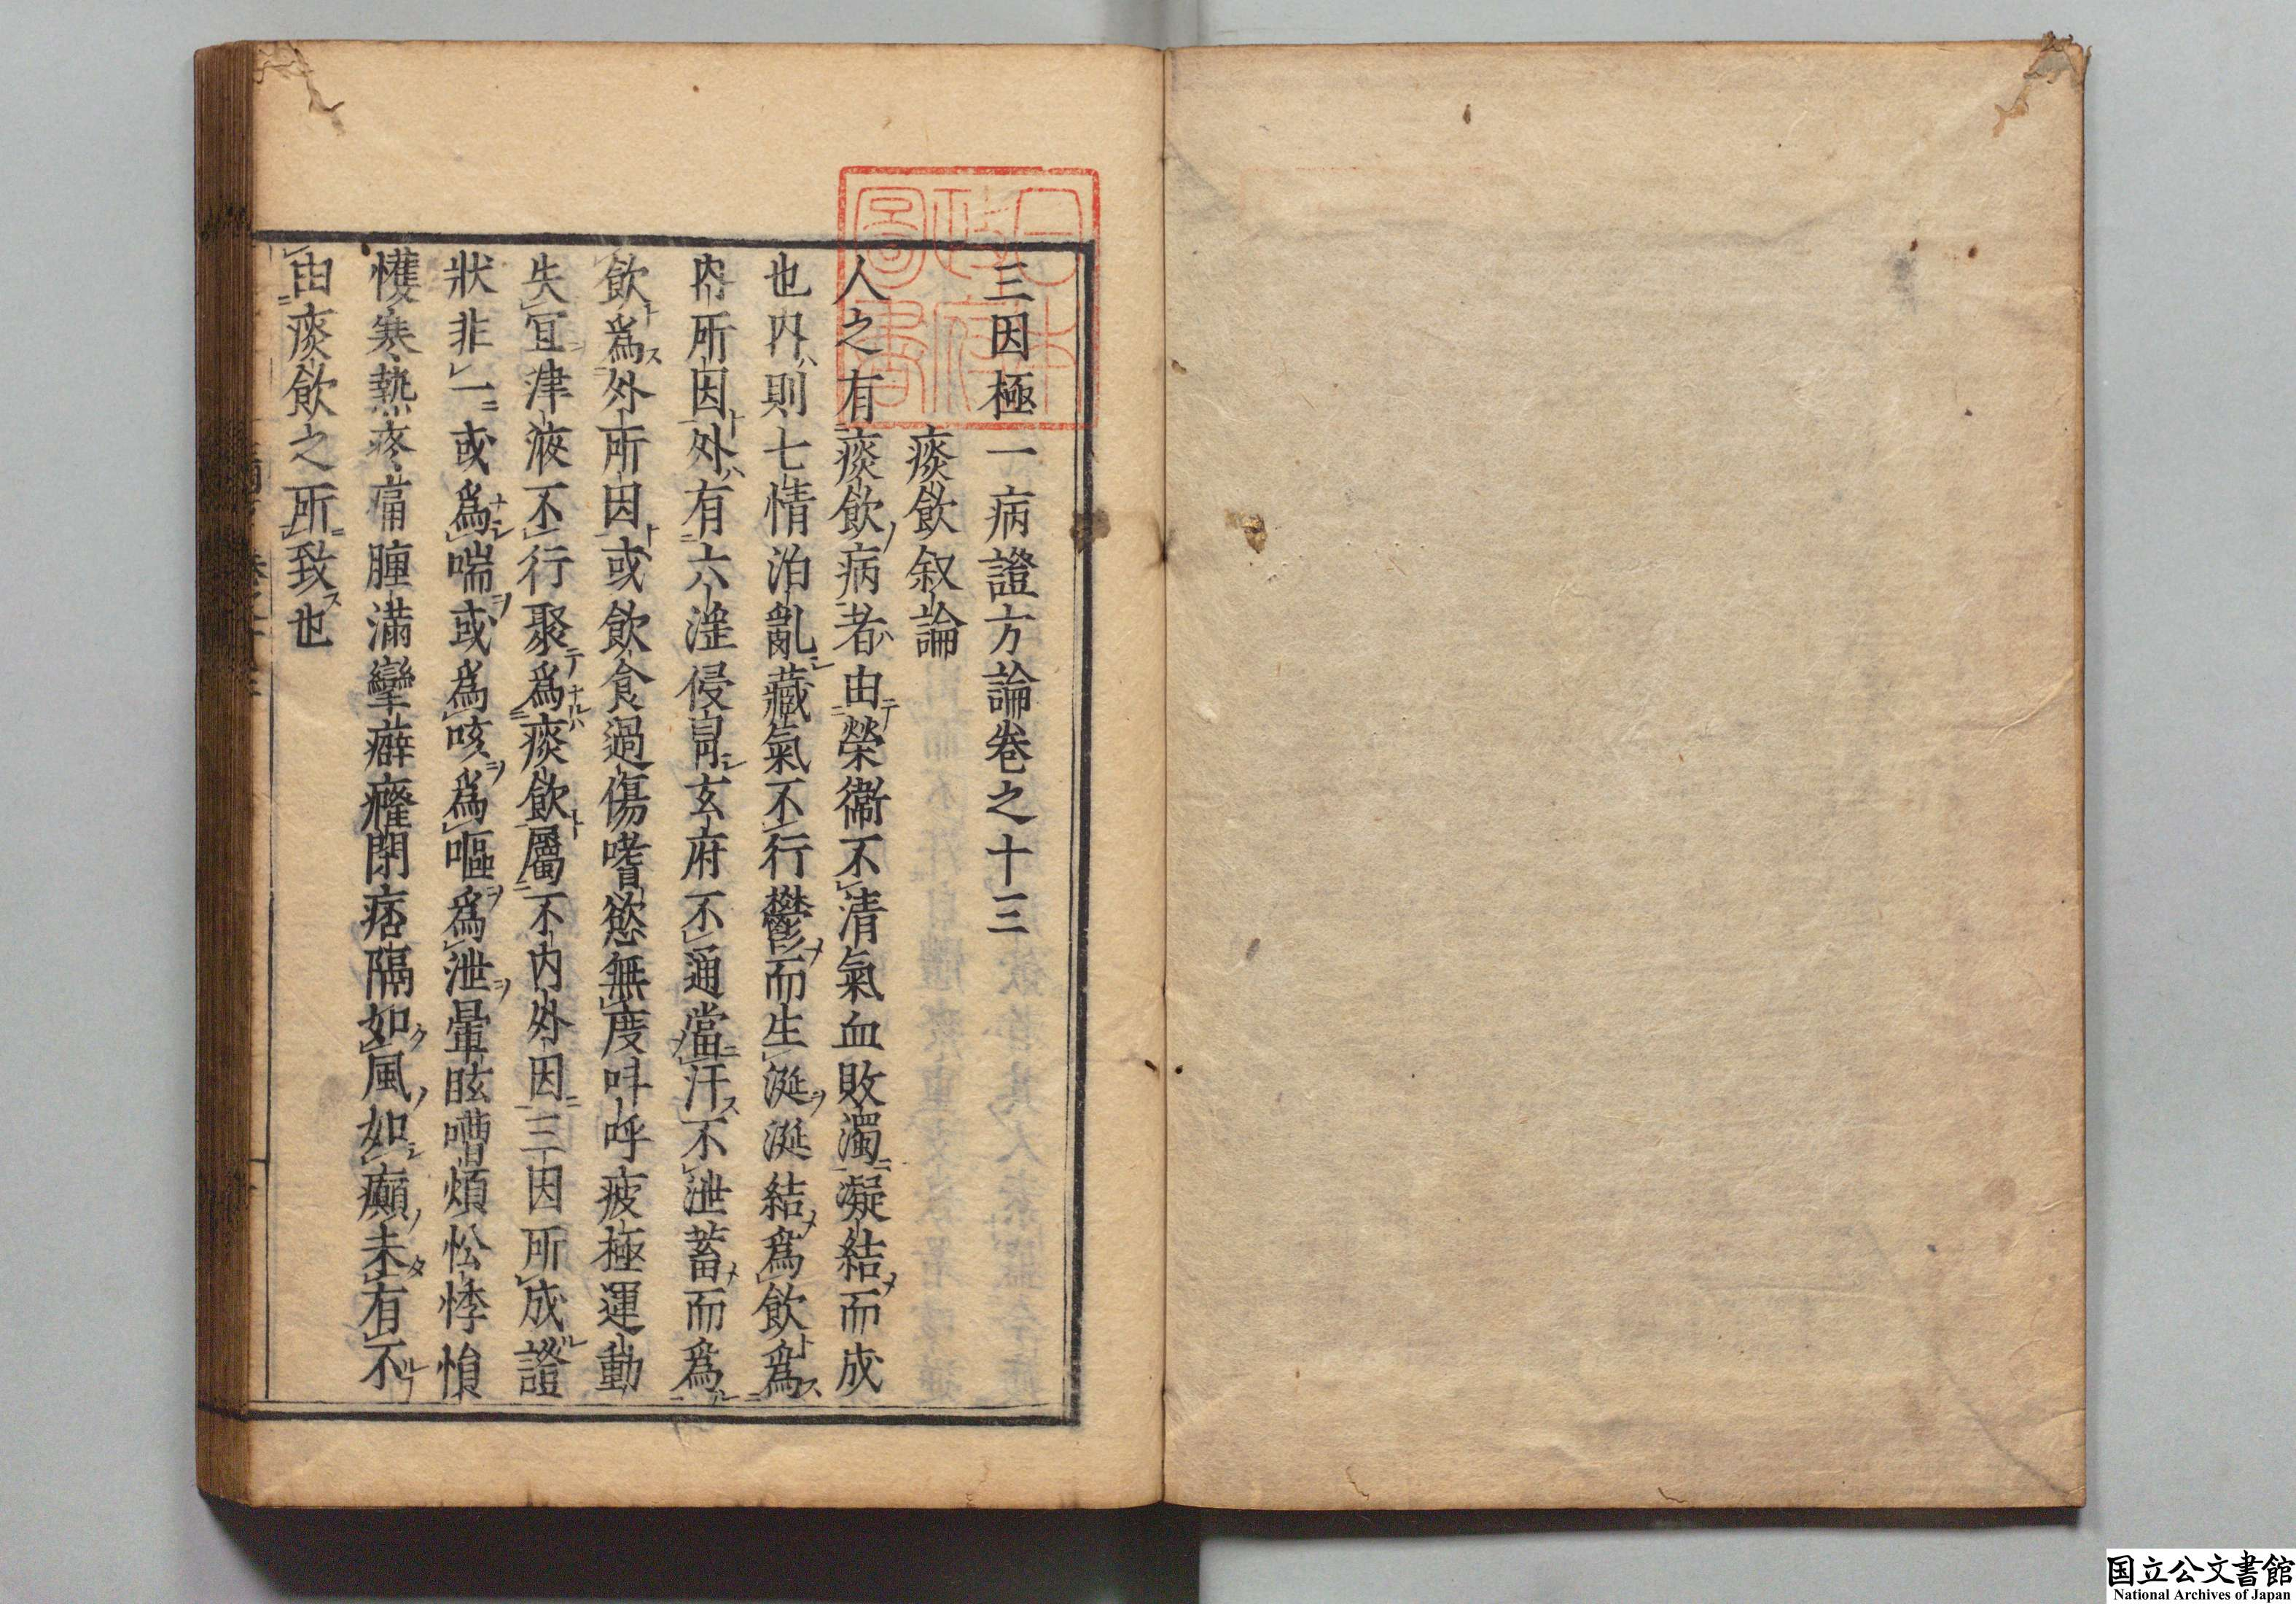 三因極一病證方論卷之十三
痰飲叙論
人之有痰飲病者由榮衞不清氣血敗濁凝結而成
也内則七情泊亂藏氣不行鬱而生涎涎結爲飲爲
内所因外有六淫侵冐玄府不通當汗不泄蓄而爲
飲爲外所因或飲食過傷嗜慾無度呌呼疲極運動
失宜津液不行聚爲痰飲屬不内外因三因所成證
狀非一或爲喘或爲咳爲嘔爲泄暈眩嘈煩忪悸愩
慢寒熱疼痛腫滿攣癖癃閉痞隔如風如癲未有不
由痰飲之所致也
日本
政府
圖書
国立公文書館
National Archives of Japan